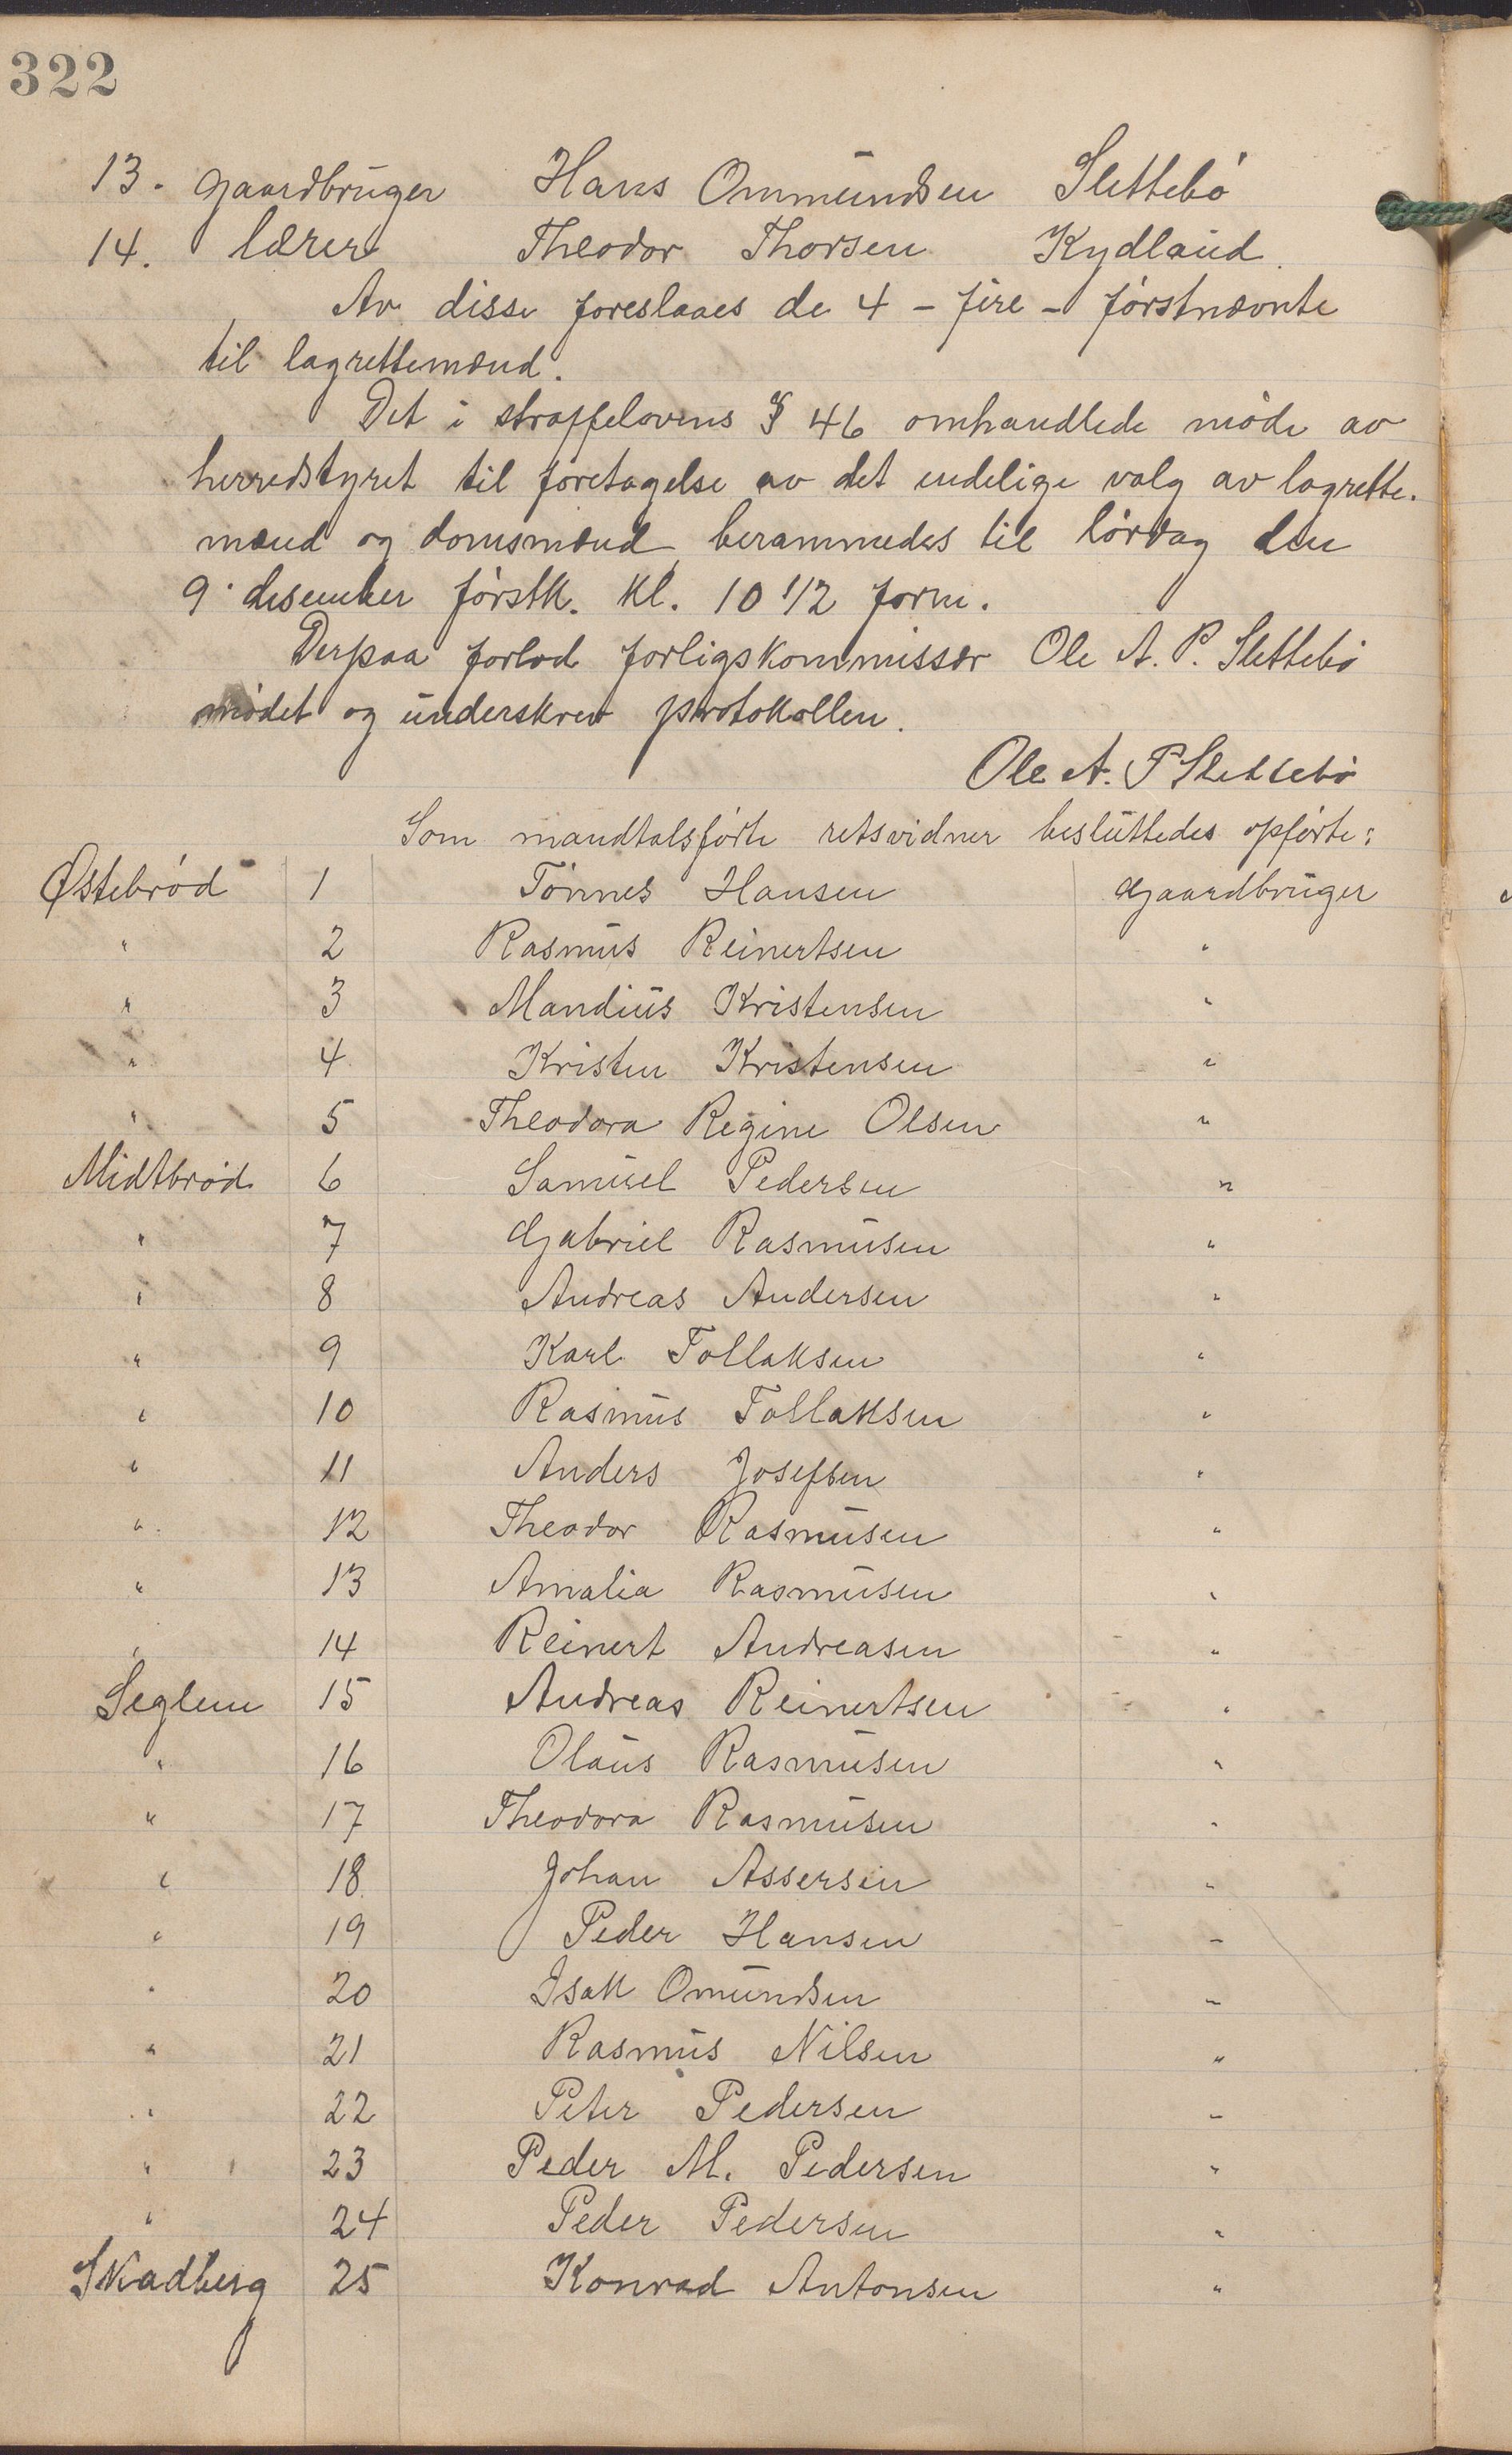 322
13. gaardbruger Hans Ommundsen Slettebø
14. lærer Theodor Thorsen Kydland.
Av disse foreslaaes de 4 - fire - førstnævnte
til lagrettemænd.
Det i straffelovens § 46 omhandlede møde av
herredstyret til foretagelse av det endelige valg av lagrette-
mænd og domsmænd berammedes til lørdag den
9. desember førstk. kl. 10 1/2 form.
Derpaa forlod forligskommissær Ole A. P. Slettebø
mødet og underskrev protokollen.
Ole A. P Slettebø
Som mandtalsførte retsvidner besluttedes opførte:
Østebrød 1 Tønnes Hansen Gaardbruger
" 2 Rasmus Reinertsen "
" 3 Mandius Kristensen "
" 4 Kristen Kristensen "
" 5 Theodora Regine Olsen "
Midtbrød 6 Samuel Pedersen "
" 7 Gabriel Rasmusen "
" 8 Andreas Andersen "
" 9 Karl Tollaksen "
" 10 Rasmus Tollaksen "
" 11 Anders Josefsen "
" 12 Theodor Rasmusen "
" 13 Amalia Rasmusen "
" 14 Reinert Andreasen "
Seglem 15 Andreas Reinertsen "
" 16 Olaus Rasmusen "
" 17 Theodora Rasmusen "
" 18 Johan Assersen "
" 19 Peder Hansen "
" 20 Isak Omundsen "
" 21 Rasmus Nilsen "
" 22 Peter Pedersen "
" 23 Peder M. Pedersen "
" 24 Peder Pedersen "
Skadberg 25 Konrad Antonsen "